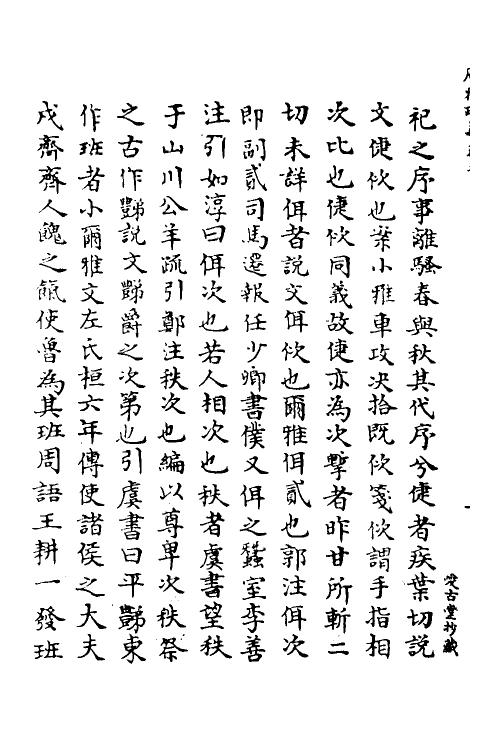 祀之序事離騷春與秋其代序兮倢者疾葉切說
文倢佽也案小雅車攻决拾既佽箋佽謂手指相
次比也倢佽同義故倢亦為次掔者昨甘所斬二
切未詳佴者說文佴佽也爾雅佴貳也郭注佴次
即副貳司馬遷報任少卿書僕又佴之蠶室李善
注引如淳曰佴次也若人相次也秩者虞書望秩
于山川公羊疏引鄭注秩次也編以尊卑次秩祭
之古作豑說文豑爵之次第也引虞書曰平豑東
作班者小爾雅文左氏桓六年傳使諸侯之大夫
戍齊齊人餽之餼使魯為其班周語王耕一發班
安古堂抄藏